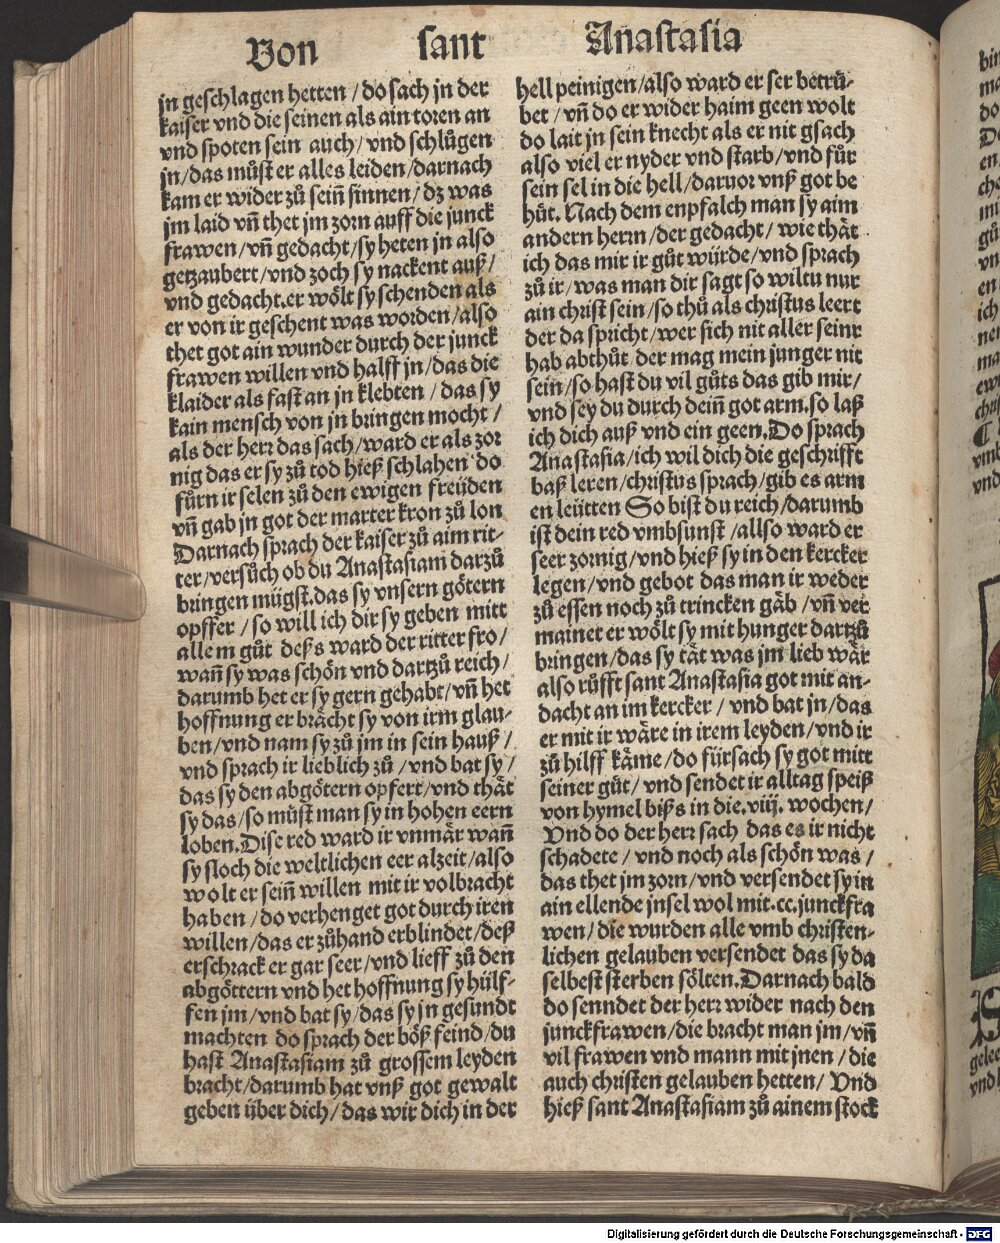 Von sant Anastasia
jn geschlagen hetten / do sach jn der
kaiser vnd die seinen als ain toren an
vnd spoten sein auch / vnd schlůgen
jn / das můst er alles leiden / darnach
kam er wider zů sein̄ sinnen / dz was
jm laid vn̄ thet jm zorn auff die junck
frawen / vn̄ gedacht / sy heten jn also
getzaubert / vnd zoch sy nackent auß /
vnd gedacht. er wölt sy schenden als
er von ir geschent was worden / also
thet got ain wunder durch der junck
frawen willen vnd halff jn / das die
klaider als fast an jn klebten / das sy
kain mensch von jn bringen mocht /
als der herr das sach / ward er als zor
nig das er sy zů tod hieß schlahen do
fůrn ir selen zů den ewigen freüden
vn̄ gab jn got der marter kron zů lon
Darnach sprach der kaiser zů aim rit-
ter / versůch ob du Anastasiam darzů
bringen mügst. das sy vnsern götern
opffer / so will ich dir sy geben mitt
alle m gůt deß s ward der ritter fro /
wan̄ sy was schön vnd dartzů reich /
darumb het er sy gern gehabt / vn̄ het
hoffnung er brächt sy von irm glau-
ben / vnd nam sy zů jm in sein hauß /
vnd sprach ir lieblich zů / vnd bat sy /
das sy den abgötern opfert / vnd thät
sy das / so můst man sy in hohen eern
loben. Dise red ward ir vnmär wan̄
sy floch die weltlichen eer alzeit / also
wolt er sein̄ willen mit ir volbracht
haben / do verhenget got durch iren
willen / das er zůhand erblindet / deß
erschrack er gar seer / vnd lieff zů den
abgöttern vnd het hoffnung sy hülf-
fen jm / vnd bat sy / das sy jn gesundt
machten do sprach der böß feind / du
hast Anastasiam zů grossem leyden
bracht / darumb hat vnß got gewalt
geben über dich / das wir dich in der
hell peinigen / also ward er ser betrü-
bet / vn̄ do er wider haim geen wolt
do lait jn sein knecht als er nit gsach
also viel er nyder vnd starb / vnd fůr
sein sel in die hell / daruor vnß got be
hüt. Nach dem enpfalch man sy aim
andern herrn / der gedacht / wie thät
ich das mir ir gůt würde / vnd sprach
zů ir / was man dir sagt so wiltu nur
ain christ sein / so thů als christus leert
der da spricht / wer sich nit aller seinr
hab abthůt der mag mein junger nit
sein / so hast du vil gůts das gib mir /
vnd sey du durch dein̄ got arm. so laß
ich dich auß vnd ein geen. Do sprach
Anastasia / ich wil dich die geschrifft
baß leren / christus sprach / gib es arm
en leütten So bist du reich / darumb
ist dein red vmbsunst / allso ward er
seer zornig / vnd hieß sy in den kercker
legen / vnd gebot das man ir weder
zů essen noch zů trincken gäb / vn̄ ver
mainet er wölt sy mit hunger dartzů
bringen / das sy tät was jm lieb wär
also růfft sant Anastasia got mit an-
dacht an im kercker / vnd bat jn / das
er mit ir wäre in irem leyden / vnd ir
zů hilff käme / do fürsach sy got mitt
seiner güt / vnd sendet ir alltag speiß
von hymel biß s in die. viij. wochen /
Vnd do der herr sach das es ir nicht
schadete / vnd noch als schön was /
das thet jm zorn / vnd versendet sy in
ain ellende jnsel wol mit .cc. junckfra
wen / die wurden alle vmb christen-
lichen gelauben versendet das sy da
selbest sterben sölten. Darnach bald
do senndet der herr wider nach den
junckfrawen / die bracht man jm / vn̄
vil frawen vnd mann mit jnen / die
auch christen gelauben hetten / Vnd
hieß sant Anastasiam zů ainem stock
Digitalisierung gefördert durch die Deutsche Forschungsgemeinschaft - DFG